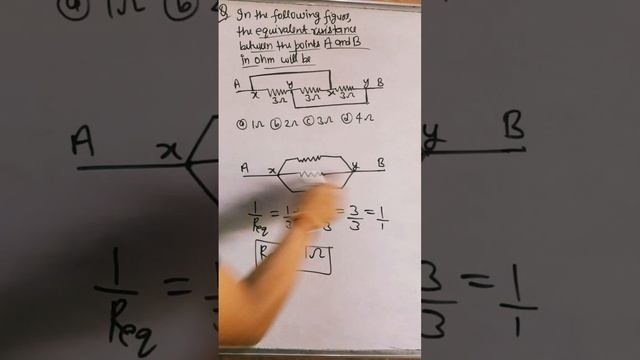 Q. In the following figure,
the equivalent resistance
between the points A and B
in ohm will be
A x y x y B
3Ω 3Ω 3Ω
ⓐ 1Ω ⓑ 2Ω ⓒ 3Ω ⓓ 4Ω
A x y B
1/Req = 1/3 = 3/3 = 1/1
1Ω
A x y B
1/Req = 3/3 = 1/1